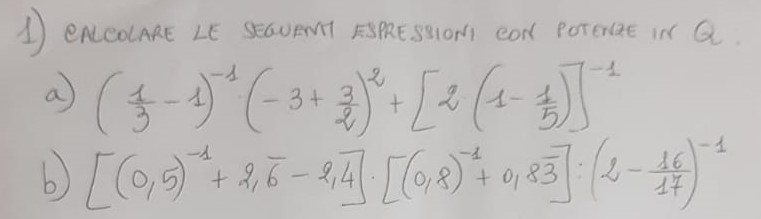 1) CALCOLARE LE SEGUENTI ESPRESSIONI CON POTENZE IN Q.
a) (1/3 - 1)⁻¹ (-3 + 3/2)² + [2 · (1 - 1/5)]⁻¹
b) [(0,5)⁻¹ + 2,6̅ - 2,4̅] · [(0,8)⁻¹ + 0,83̅] : (2 - 16/17)⁻¹